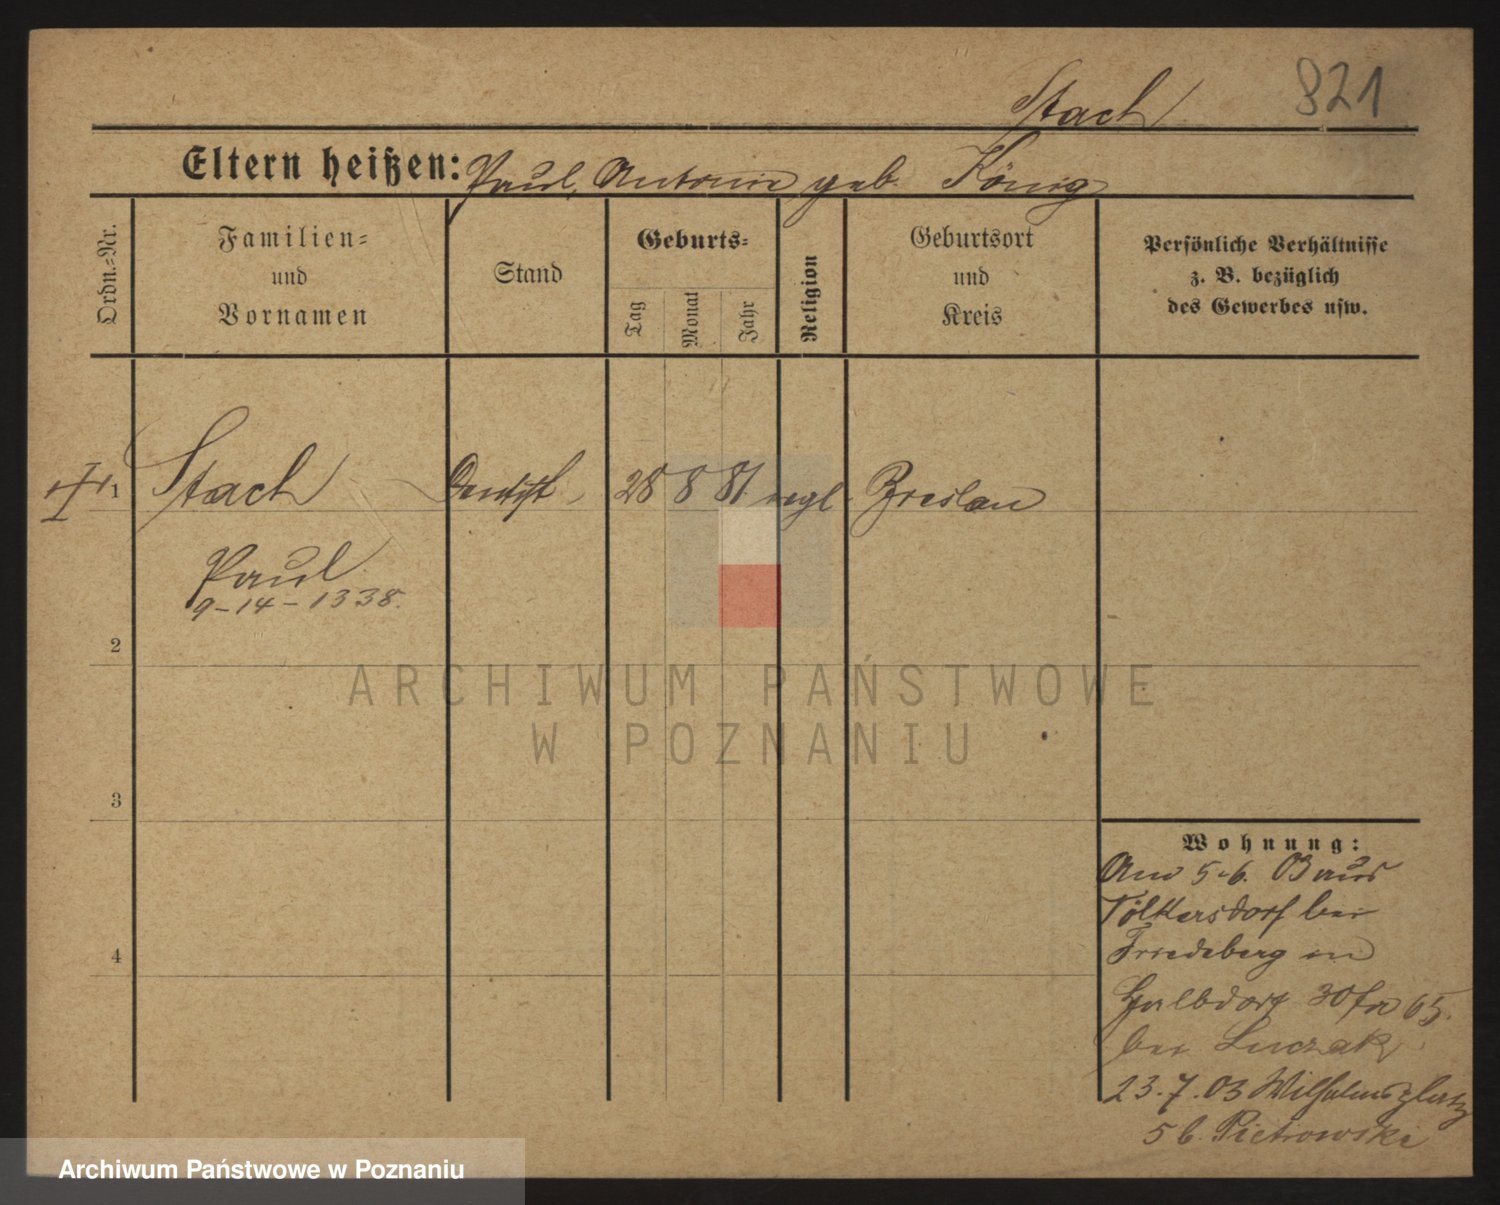 821
Stach
Eltern heißen: Paul, Antonie geb. König
Ordn.-Nr.
Familien-
und
Vornamen
Stand
Geburts-
Tag
Monat
Jahr
Religion
Geburtsort
und
Kreis
Persönliche Verhältnisse
z. B. bezüglich
des Gewerbes usw.
1 Stach Dentist 28 8 81 Breslau
Paul
9-14-1338.
2
3
4
Wohnung:
5.6. 03 aus
bei
Friedeberg
30
bei Luczak
23.7.03 Wilhelmsplatz
5 b. Pietrowski
ARCHIWUM PAŃSTWOWE
W POZNANIU
Archiwum Państwowe w Poznaniu